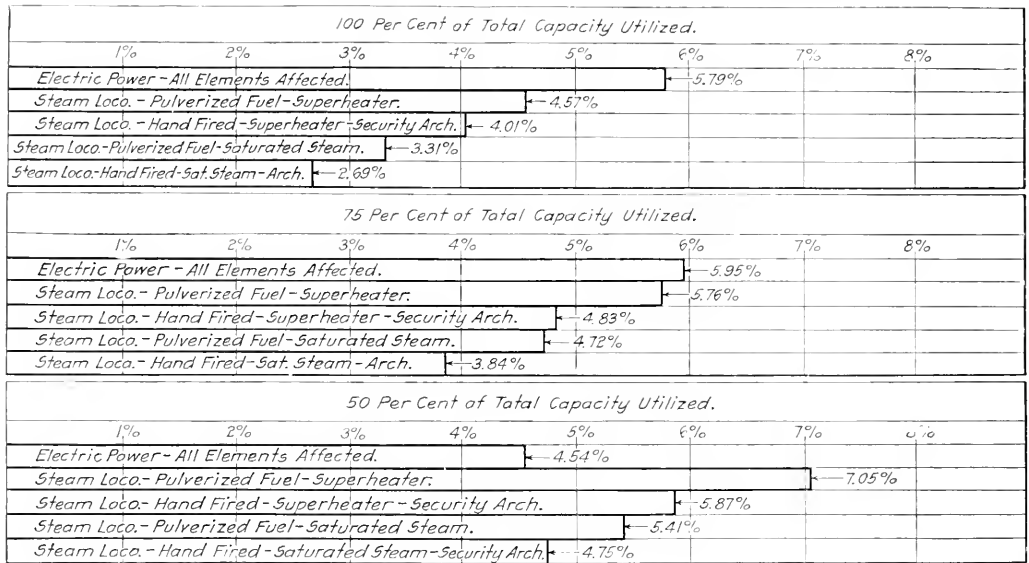 100 Per Cent of Total Capacity Utilized.
1% 2% 3% 4% 5% 6% 7% 8%
Electric Power-All Elements Affected. 5.79%
Steam Loco.-Pulverized Fuel-Superheater. 4.57%
Steam Loco.-Hand Fired-Superheater-Security Arch. 4.01%
Steam Loco.-Pulverized Fuel-Saturated Steam. 3.31%
Steam Loco.-Hand Fired-Sat. Steam-Arch. 2.69%
75 Per Cent of Total Capacity Utilized.
1% 2% 3% 4% 5% 6% 7% 8%
Electric Power-All Elements Affected. 5.95%
Steam Loco.-Pulverized Fuel-Superheater. 5.76%
Steam Loco.-Hand Fired-Superheater-Security Arch. 4.83%
Steam Loco.-Pulverized Fuel-Saturated Steam. 4.72%
Steam Loco.-Hand Fired-Sat. Steam-Arch. 3.84%
50 Per Cent of Total Capacity Utilized.
1% 2% 3% 4% 5% 6% 7% 8%
Electric Power-All Elements Affected. 4.54%
Steam Loco.-Pulverized Fuel-Superheater. 7.05%
Steam Loco.-Hand Fired-Superheater-Security Arch. 5.87%
Steam Loco.-Pulverized Fuel-Saturated Steam. 5.41%
Steam Loco.-Hand Fired-Saturated Steam-Security Arch. 4.75%